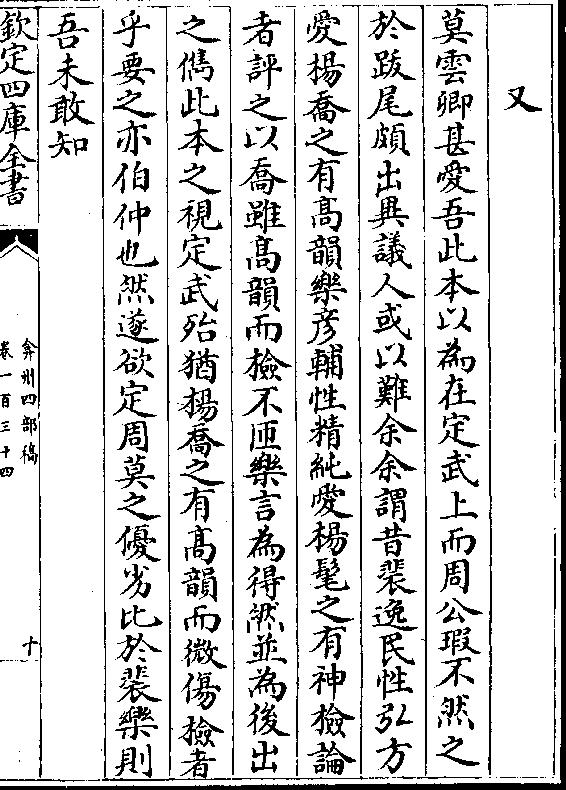 又
莫雲卿甚愛吾此本以為在定武上而周公瑕不然之
於跋尾頗出異議人或以難余余謂昔裴逸民性弘方
愛楊喬之有髙韻樂彦輔性精純愛楊髦之有神檢論
者評之以喬雖髙韻而檢不匝樂言為得然並為後出
之儁此本之視定武殆猶楊喬之有髙韻而微傷檢者
乎要之亦伯仲也然遂欲定周莫之優劣比於裴樂則
吾未敢知
欽定四庫全書
弇州四部稿
卷一百三十四
十